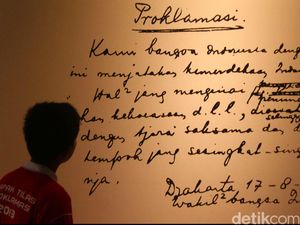 Proklamasi.
Kami bangsa Indonesia deng
ini menjatakan kemerdekaan Indon
Hal² jang mengenai
kekoeasaan d.l.l., dise
dengan tjara saksama dan d
tempoh jang sesingkat-sing
nja.
Djakarta 17-8-
Wakil² bangsa I
NAPAK TILAS
PROKLAMASI
2013
detikcom